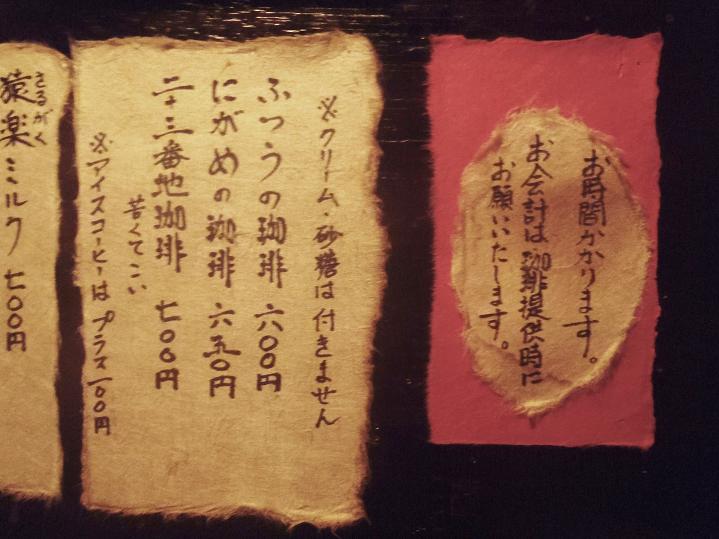 お時間かかります。
お会計は珈琲提供時に
お願いいたします。
※クリーム・砂糖は付きません
ふつうの珈琲 六〇〇円
にがめの珈琲 六五〇円
二十三番地珈琲 七〇〇円
苦くてこい
※アイスコーヒーはプラス一〇〇円
さるがく
猿楽ミルク 七〇〇円